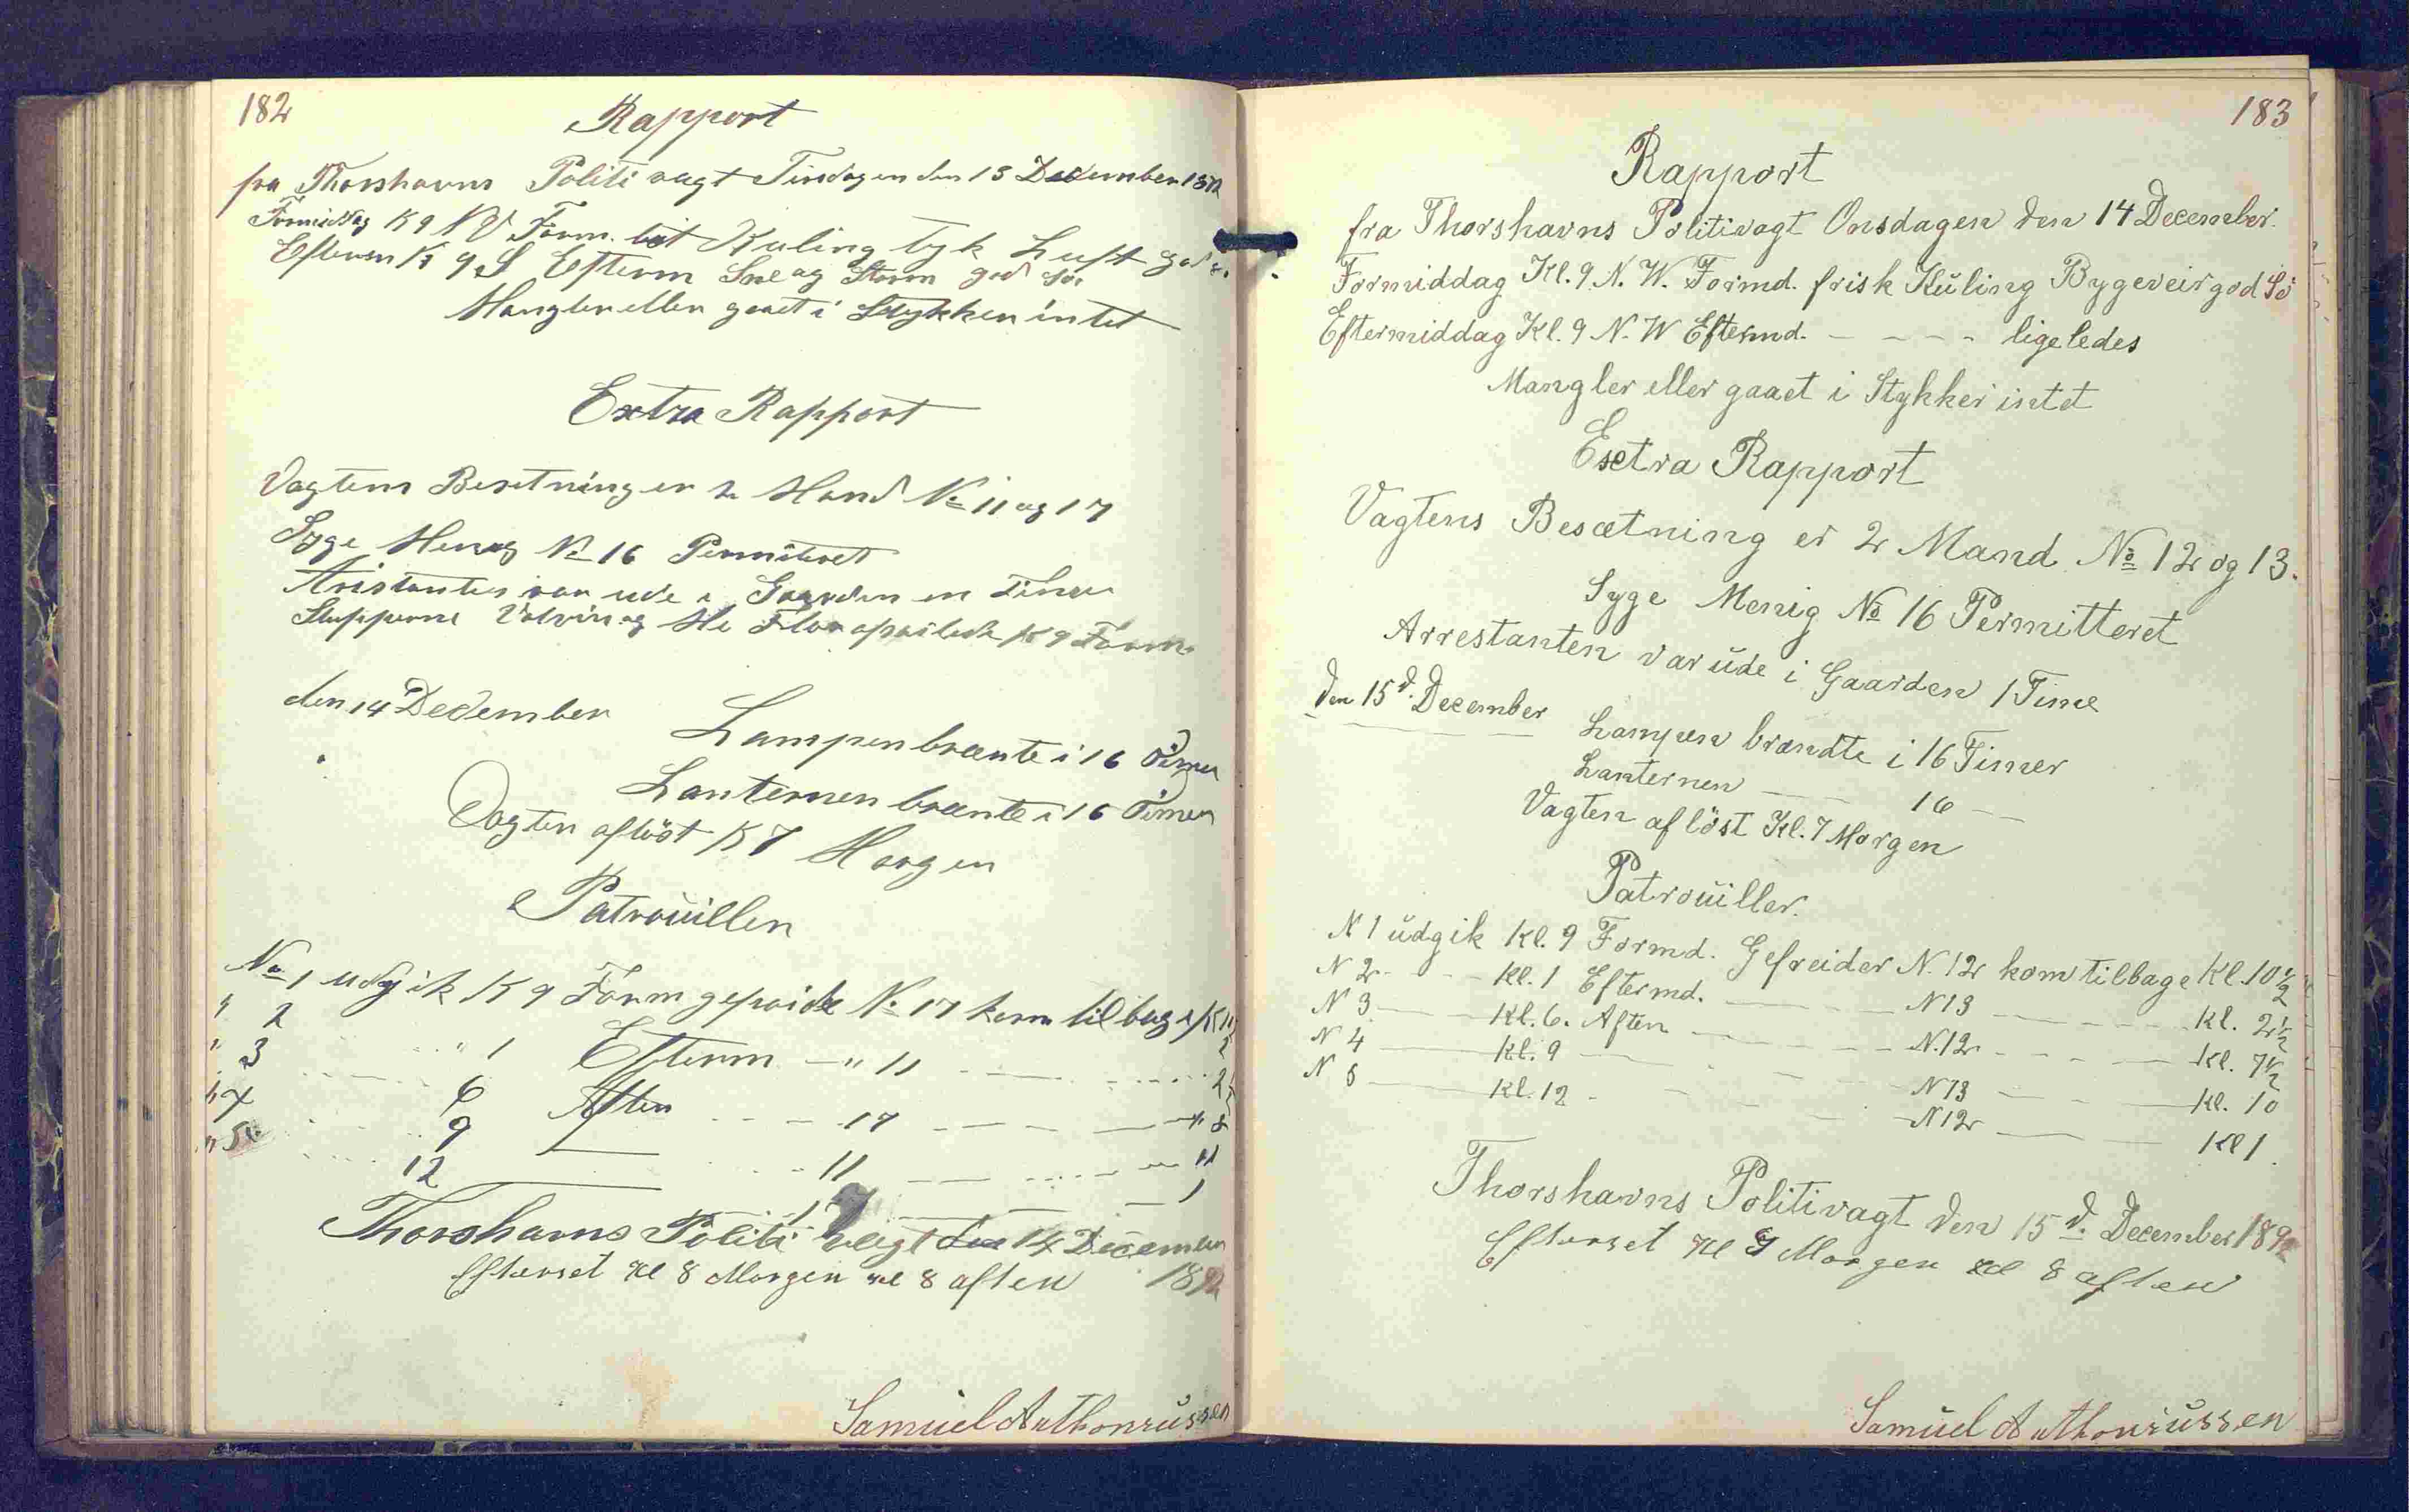 182
Rapport
fra Thorshavns Politi vagt Tirsdagen den 13 December 1892
Formiddag Kl 9 NV Form. let Kuling tyk Luft god
Efterm Kl 9 S Efterm Sne og Storm god Sø
Mangler eller gaaet i Stykker intet
Extra Rapport
Vagtens Besetning er 2 Mand No 11 og 17
Syge Menig No 16 Permiteret
Aristanten var ude i Gaarden en Time
Slupperne og He Flor Kl 9 Form
den 14 December
Lampen brænte i 16 Timer
Lanternen brænte i 16 Timer
Vagten afløst Kl 7 Morgen
Patrouillen
No 1 udgik Kl 9 Form gefreider No 17 kom tilbage Kl 11
" 2 " 1 Efterm — " 11 2
" 3 6 Aften 17 — " 8
" 4 9 — 11 — 11
" 5 12 — 17 — 1
Thorshavns Politi vagt den 14 December
1892
Efterset Kl 8 Morgen Kl 8 aften
Samuel Anthoniussen
183
Rapport
fra Thorshavns Politivagt Onsdagen den 14 December.
Formiddag Kl. 9 N. W. Formd. frisk Kuling Bygeveir god Sö
Eftermiddag Kl. 9 N. W Eftermd. - - - - ligeledes
Mangler eller gaaet i Stykker intet
Exetra Rapport
Vagtens Besætning er 2 Mand No 12 og 13.
Syge Menig No 16 Permitteret
Arrestanten var ude i Gaarden 1 Time
Den 15 d. December
Lampen brændte i 16 Timer
Lanternen — 16 —
Vagten aflöst Kl. 7 Morgen
Patrouiller.
N 1 udgik Kl. 9 Formd. Gefreider N. 12 kom tilbage Kl. 10 1/2
N 2 - - - Kl. 1 Eftermd. — N 13 — Kl. 2 1/2
N 3 — Kl. 6. Aften — N. 12 — Kl. 7 1/2
N 4 — Kl. 9 — N 13 — Kl. 10
N 5 — Kl. 12 - N 12 — Kl 1.
Thorshavns Politivagt den 15 d. December 1892
Efterset Kl 9 Morgen Kl 8 aften
Samuel Anthoniussen